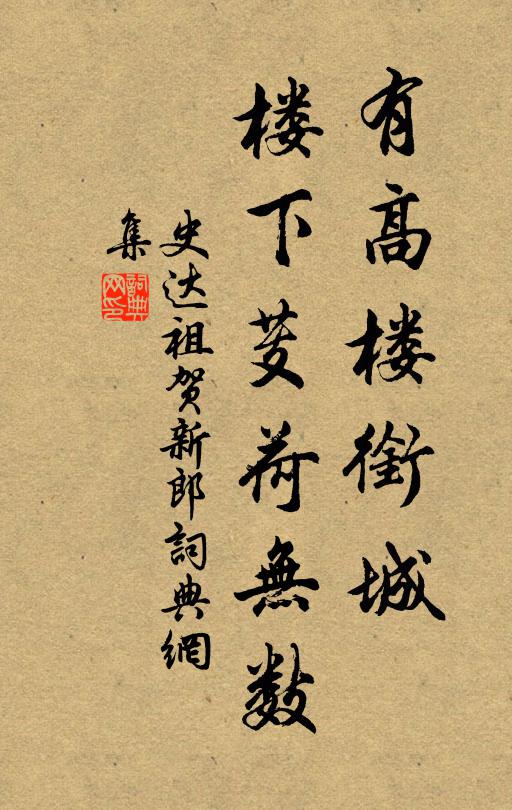 有高楼銜城
楼下芰荷無数
史达祖贺新郎詞典網
集
詞典
网印